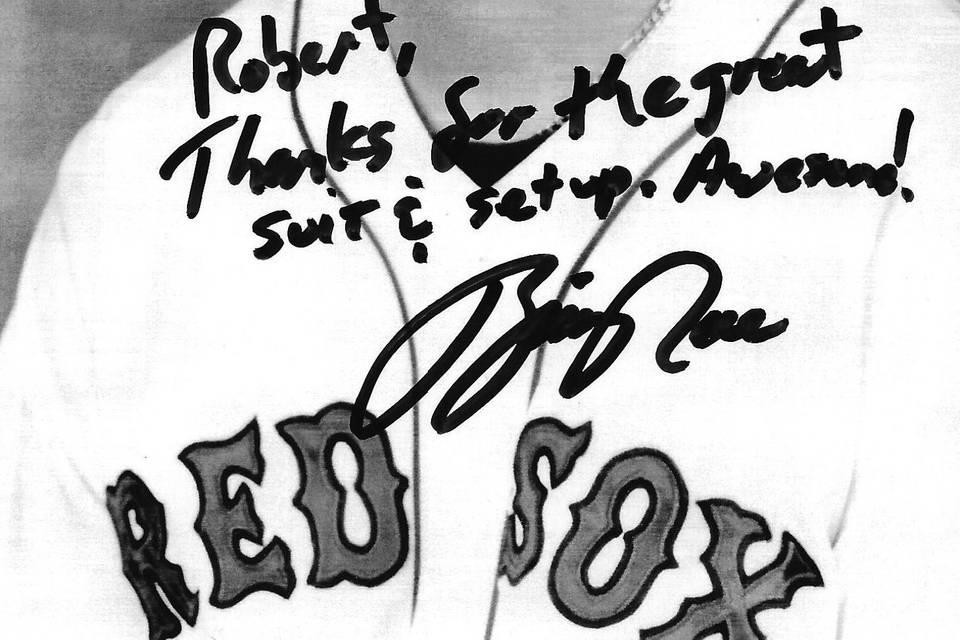 Robert,
Thanks for the great
suit & setup. Awesome!
RED SOX